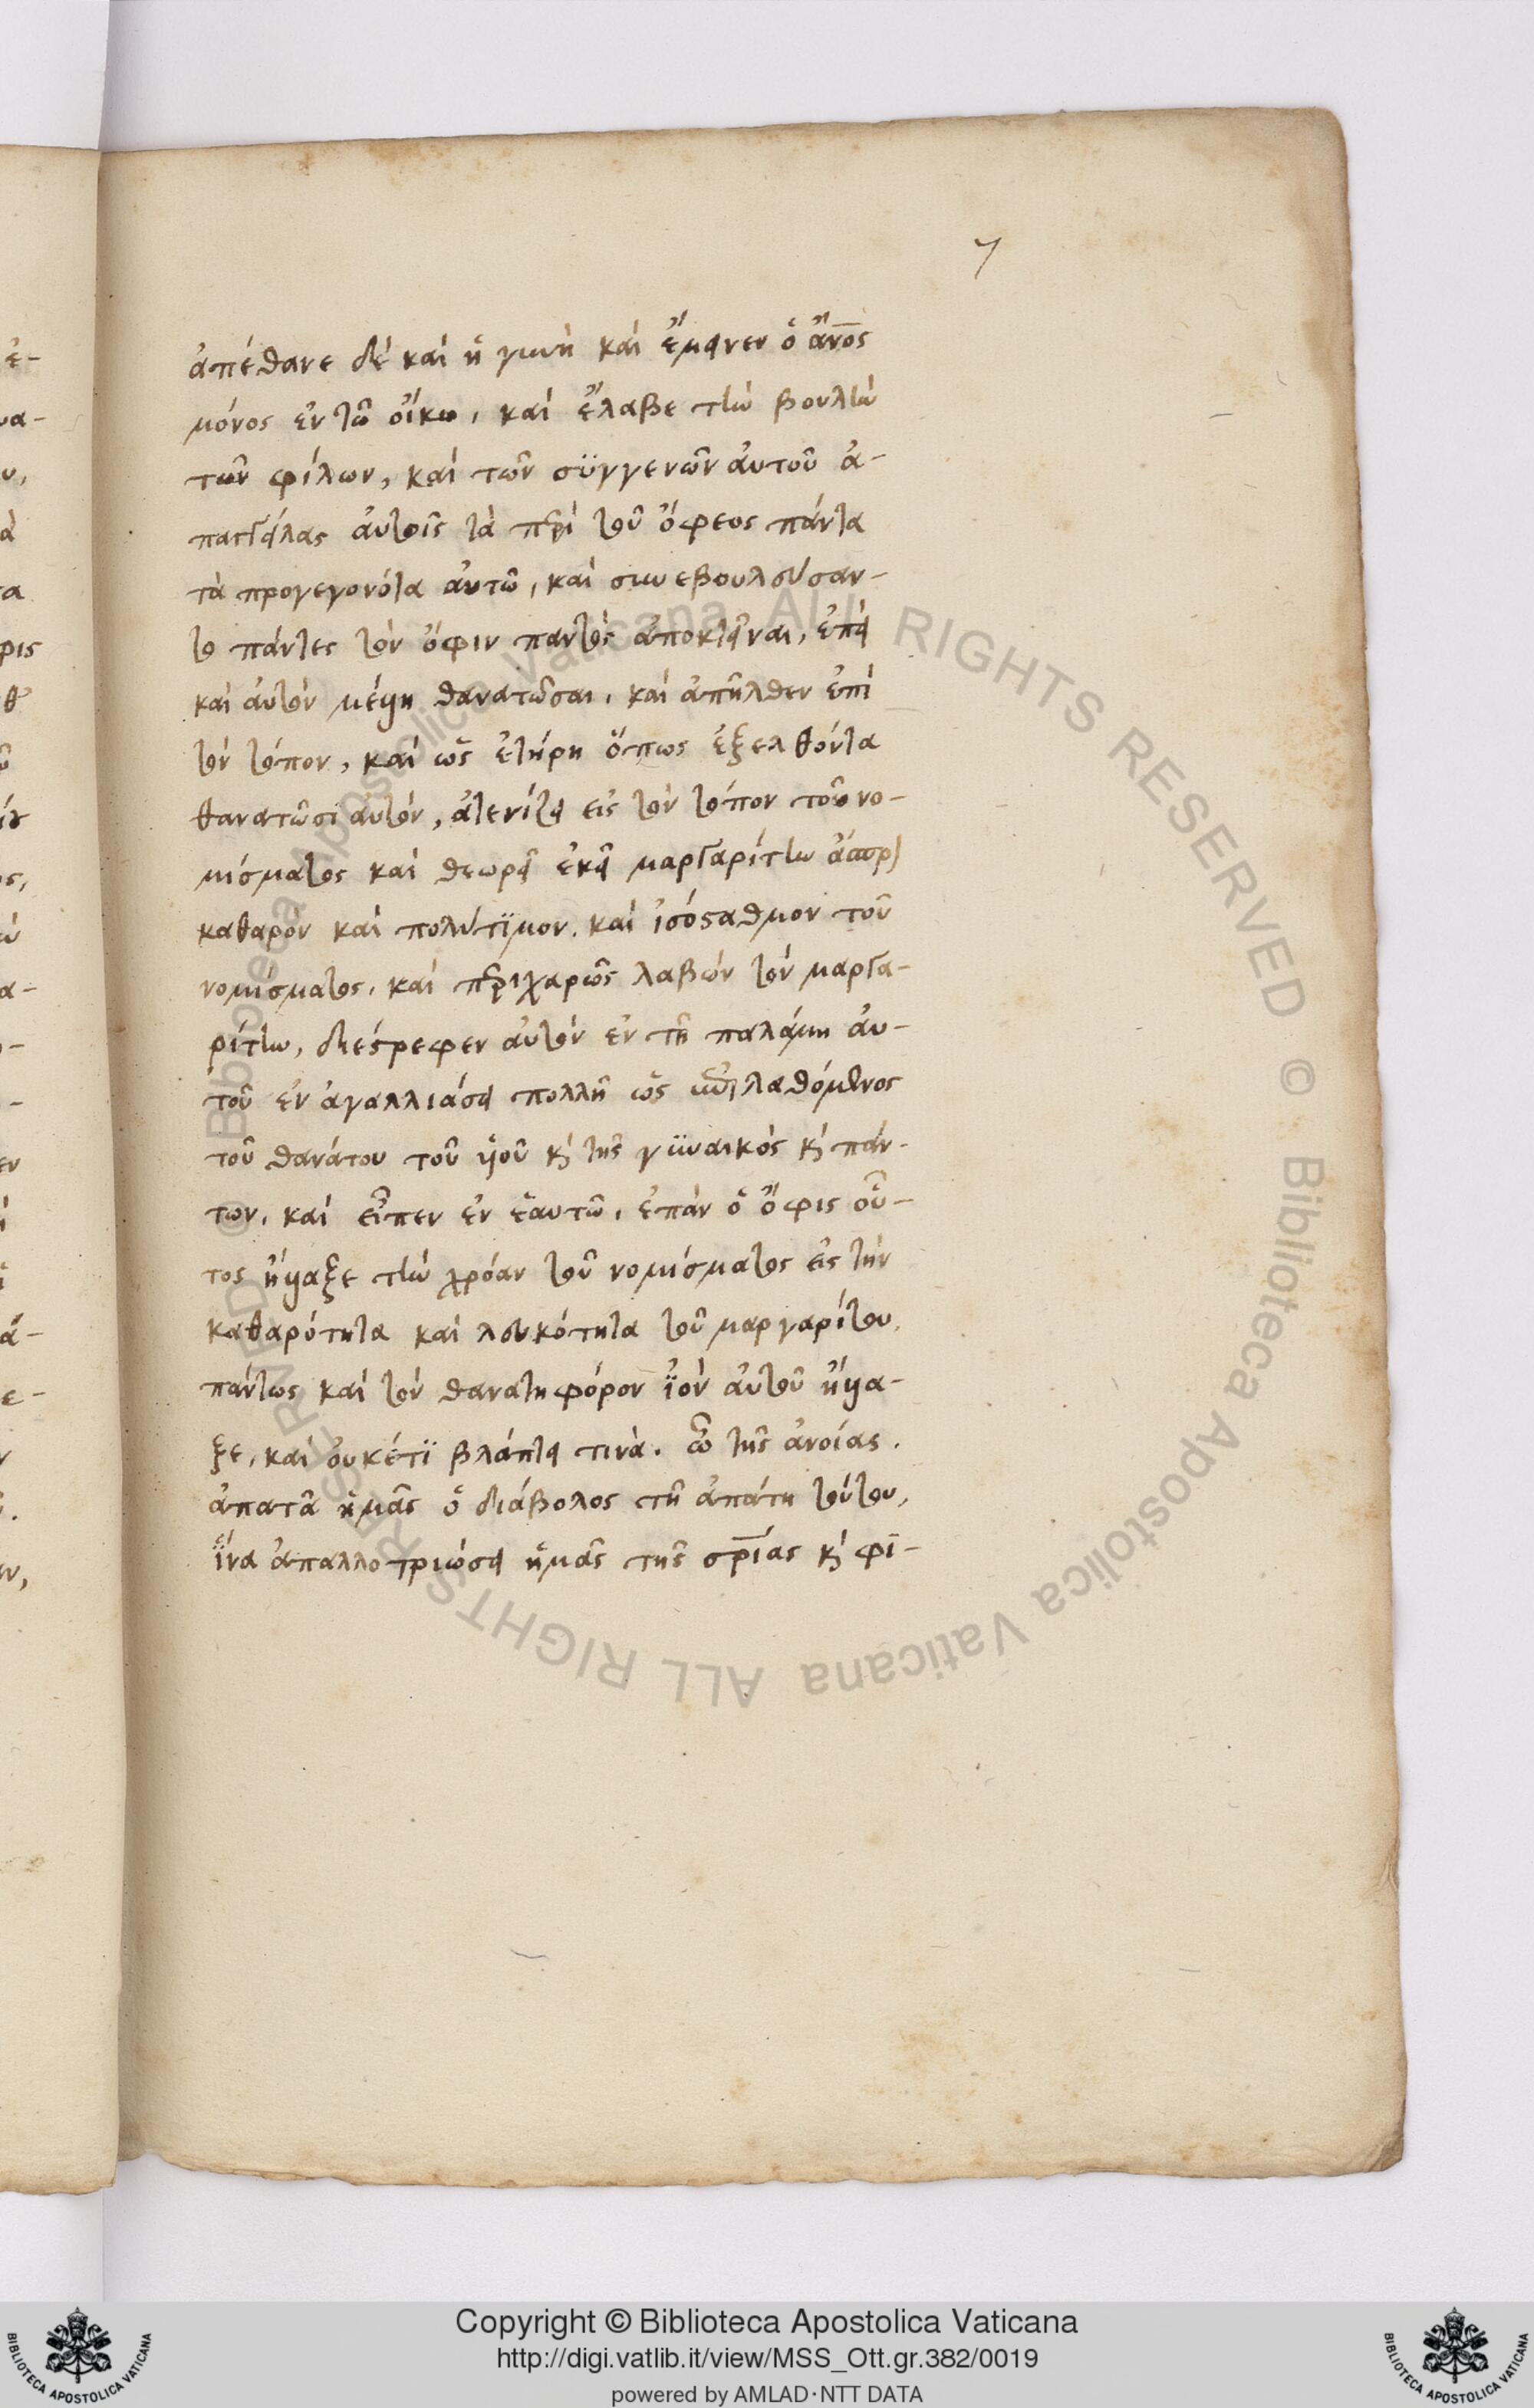 7
ἀπέθανε δέ καὶ ἡ γυνὴ καὶ ἔμεινεν ὁ ἄνος
μόνος ἐν τῶ οἴκω, καὶ ἔλαβε τὴν βουλὴν
τῶν φίλων, καὶ τῶν σϋγγενῶν ἀυτοῦ ἀ-
παγγείλας ἀυτοῖς τὰ περὶ τοῦ ὄφεος πάντα
τὰ προγεγονότα ἀυτῶ, καὶ συνεβουλεύσαν-
το πάντες τὸν ὄφιν παντὸς ἀποκτεῖναι, ἐπεὶ
καὶ ἀυτὸν μέλλη θανατῶσαι. καὶ ἀπῆλθεν ἐπὶ
τὸν τόπον, καὶ ὡς ἐτήρη ὅπως ἐξελθόντα
θανατῶσι ἀυτόν, ἀτενίζει εἰς τὸν τόπον τοῦ νο-
μίσματος καὶ θεωρεῖ ἐκεῖ μαργαρίτην ἄσπρ)
καθαρὸν καὶ πολύτϊμον. καὶ ἰσόσταθμον τοῦ
νομίσματος. καὶ περιχαρῶς λαβὼν τὸν μαργα-
ρίτην, διέστρεφεν ἀυτὸν ἐν τῆ παλάμη ἀυ-
τοῦ ἐν ἀγαλλιάσει πολλῆ ὡς ἐπιλαθόμενος
τοῦ θανάτου τοῦ ὑιοῦ κ τῆς γϋναικός κ πάν-
των. καὶ εἶπεν ἐν ἑαυτῶ. ἐπὰν ὁ ὄφις οὗ-
τος ἤλλαξε τὴν χρόαν τοῦ νομίσματος εἰς τὴν
καθαρότητα καὶ λευκότητα τοῦ μαργαρίτου,
πάντως καὶ τὸν θανατηφόρον ἰὸν ἀυτοῦ ἤλλα-
ξε, καὶ ὀυκέτϊ βλάπτει τινὰ. ὦ τῆς ἀνοίας.
ἀπατᾶ ἡμᾶς ὁ διάβολος τῆ ἀπάτη τούτου,
ἵνα ἀπαλλοτριώσει ἡμᾶς τῆς σρίας κ φι-
Copyright © Biblioteca Apostolica Vaticana
http://digi.vatlib.it/view/MSS_Ott.gr.382/0019
powered by AMLAD·NTT DATA
BIBLIOTECA APOSTOLICA VATICANA
BIBLIOTECA APOSTOLICA VATICANA
© Biblioteca Apostolica Vaticana ALL RIGHTS RESERVED © Biblioteca Apostolica Vaticana ALL RIGHTS RESERVED